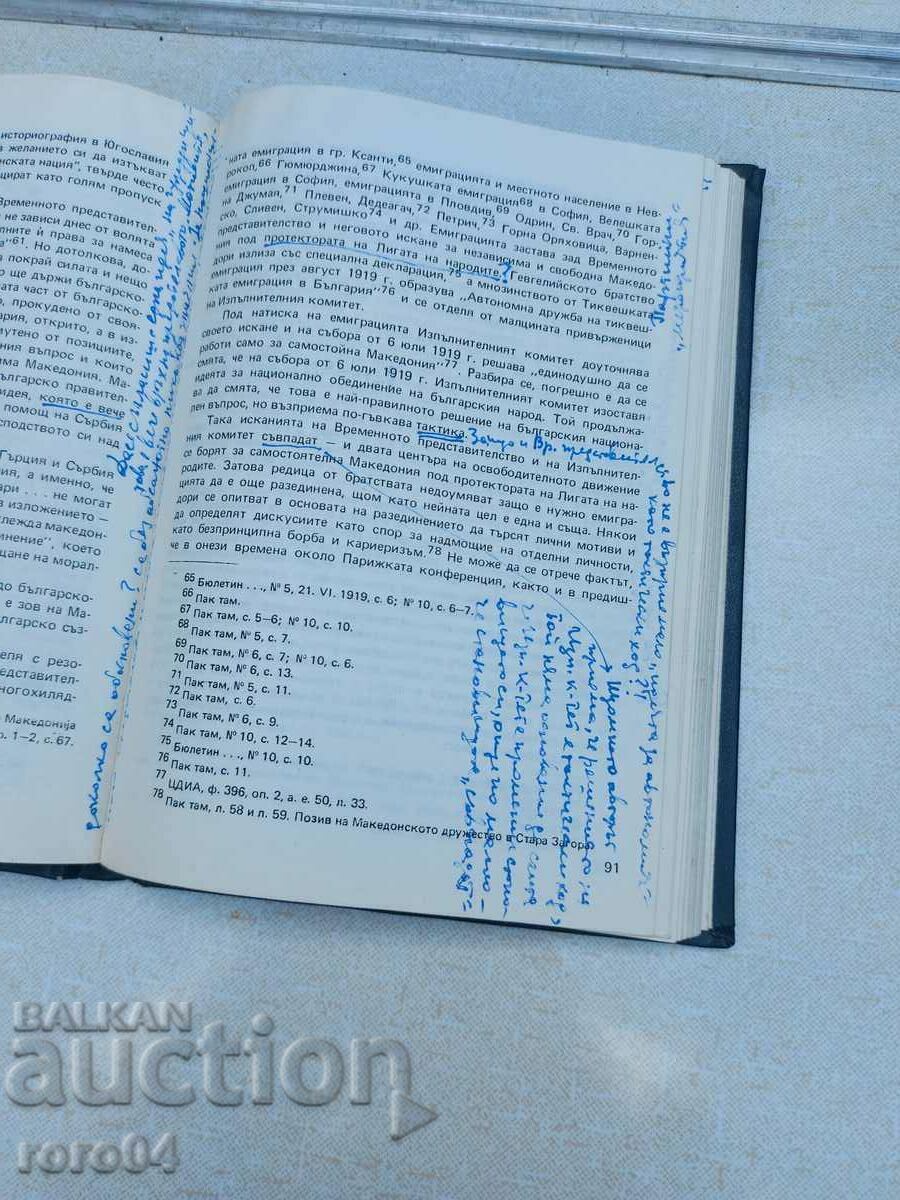 историография в Югославия
в желанието си да изтъкват
нската нация", твърде често
цират като голям пропуск
Временното представител-
не зависи днес от волята
лните ѝ права за намеса
а"61. Но дотолкова, до-
покрай силата и нещо
ще държи българско-
ата част от българско-
прокудено от своя-
ария, открито, а в из-
мутено от позициите,
ния въпрос и които
има Македония. Ма-
ългарско правител-
идея, която е вече
помощ на Сърбия
сподството си над
Гърция и Сърбия
а именно, че
ари . . . не могат
изложението –
лежда македон-
инение", което
щане на морал-
до българско-
е зов на Ма-
лгарско съз-
епя с резо-
редставител-
ногохиляд-
Македонија
р. 1–2, с. 67.
ната емиграция в гр. Ксанти,65 емиграцията и местното население в Нев-
рокоп,66 Гюмюрджина,67 Кукушката емиграция68 в София, Велешката
емиграция в София, емиграцията в Пловдив,69 Одрин, Св. Врач,70 Гор.
на Джумая,71 Плевен, Дедеагач,72 Петрич,73 Горна Оряховица, Варнен-
ско, Сливен, Струмишко74 и др. Емиграцията застава зад Временното
представителство и неговото искане за независима и свободна Македо-
ния под протектората на Лигата на народите. Гевгелийското братство
дори излиза със специална декларация,75 а мнозинството от Тиквешката
емиграция през август 1919 г. образува „Автономна дружба на тиквеш-
ката емиграция в България"76 и се отделя от малцината привърженици
на Изпълнителния комитет.
Под натиска на емиграцията Изпълнителният комитет доуточнява
своето искане и на събора от 6 юли 1919 г. решава „единодушно да се
работи само за самостойна Македония"77. Разбира се, погрешно е да се
смята, че на събора от 6 юли 1919 г. Изпълнителният комитет изоставя
идеята за национално обединение на българския народ. Той продължа-
ва да смята, че това е най-правилното решение на българския национа-
лен въпрос, но възприема по-гъвкава тактика.
Така исканията на Временното Представителство и на Изпълнител-
ния комитет съвпадат – и двата центъра на освободителното движение
се борят за самостоятелна Македония под протектората на Лигата на на-
родите. Затова редица от братствата недоумяват защо е нужно емигра-
цията да е още разединена, щом като нейната цел е една и съща. Някои
дори се опитват в основата на разединението да търсят лични мотиви и
да определят дискусиите като спор за надмощие на отделни личности,
като безпринципна борба и кариеризъм.78 Не може да се отрече фактът,
че в онези времена около Парижката конференция, както и в предиш-
65 Бюлетин . . ., № 5, 21. VI. 1919, с. 6; № 10, с. 6–7.
66 Пак там.
67 Пак там, с. 5–6; № 10, с. 10.
68 Пак там, № 5, с. 7.
69 Пак там, № 6, с. 7; № 10, с. 6.
70 Пак там, № 6, с. 13.
71 Пак там, № 5, с. 11.
72 Пак там, с. 6.
73 Пак там, № 6, с. 9.
74 Пак там, № 10, с. 12–14.
75 Бюлетин . . ., № 10, с. 10.
76 Пак там, с. 11.
77 ЦДИА, ф. 396, оп. 2, а. е. 50, л. 33.
78 Пак там, л. 58 и л. 59. Позив на Македонското дружество в Стара Загора.
91
Защо и Вр. представителство не е възприемало „идеята за автономия"
като тактически ход??
Щом като авторът
приема, че решението на
Изп. к-тет е тактически ход,
той няма основание да счита
че Изп. к-тет е променил стано-
вището си,
че становищата „съвпадат"
BALKAN
auction
roro04